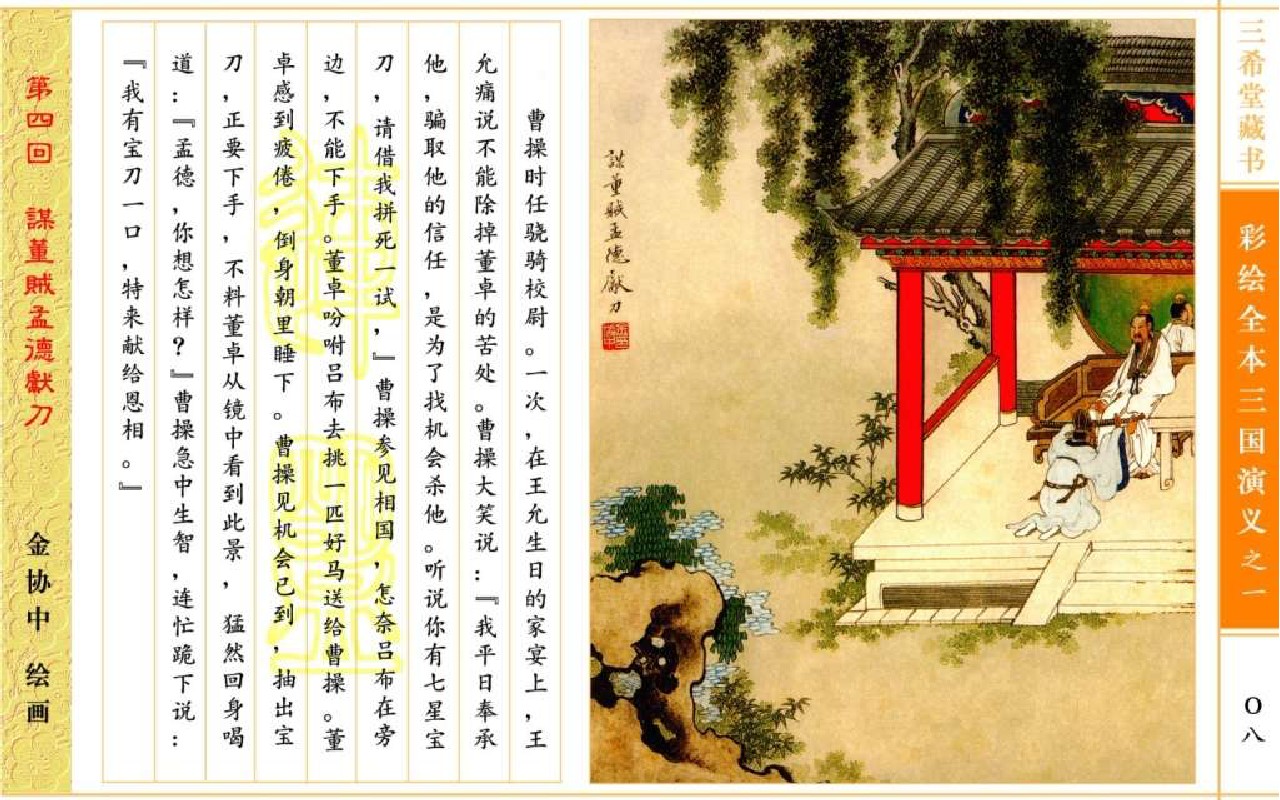 三希堂藏书
彩绘全本三国演义之一
〇八
謀董賊孟德獻刀
曹操时任骁骑校尉。一次，在王允生日的家宴上，王
允痛说不能除掉董卓的苦处。曹操大笑说：『我平日奉承
他，骗取他的信任，是为了找机会杀他。听说你有七星宝
刀，请借我拼死一试，』曹操参见相国，怎奈吕布在旁
边，不能下手。董卓吩咐吕布去挑一匹好马送给曹操。董
卓感到疲倦，倒身朝里睡下。曹操见机会已到，抽出宝
刀，正要下手，不料董卓从镜中看到此景，猛然回身喝
道：『孟德，你想怎样？』曹操急中生智，连忙跪下说：
『我有宝刀一口，特来献给恩相。』
第四回 謀董賊孟德獻刀
金协中 绘画